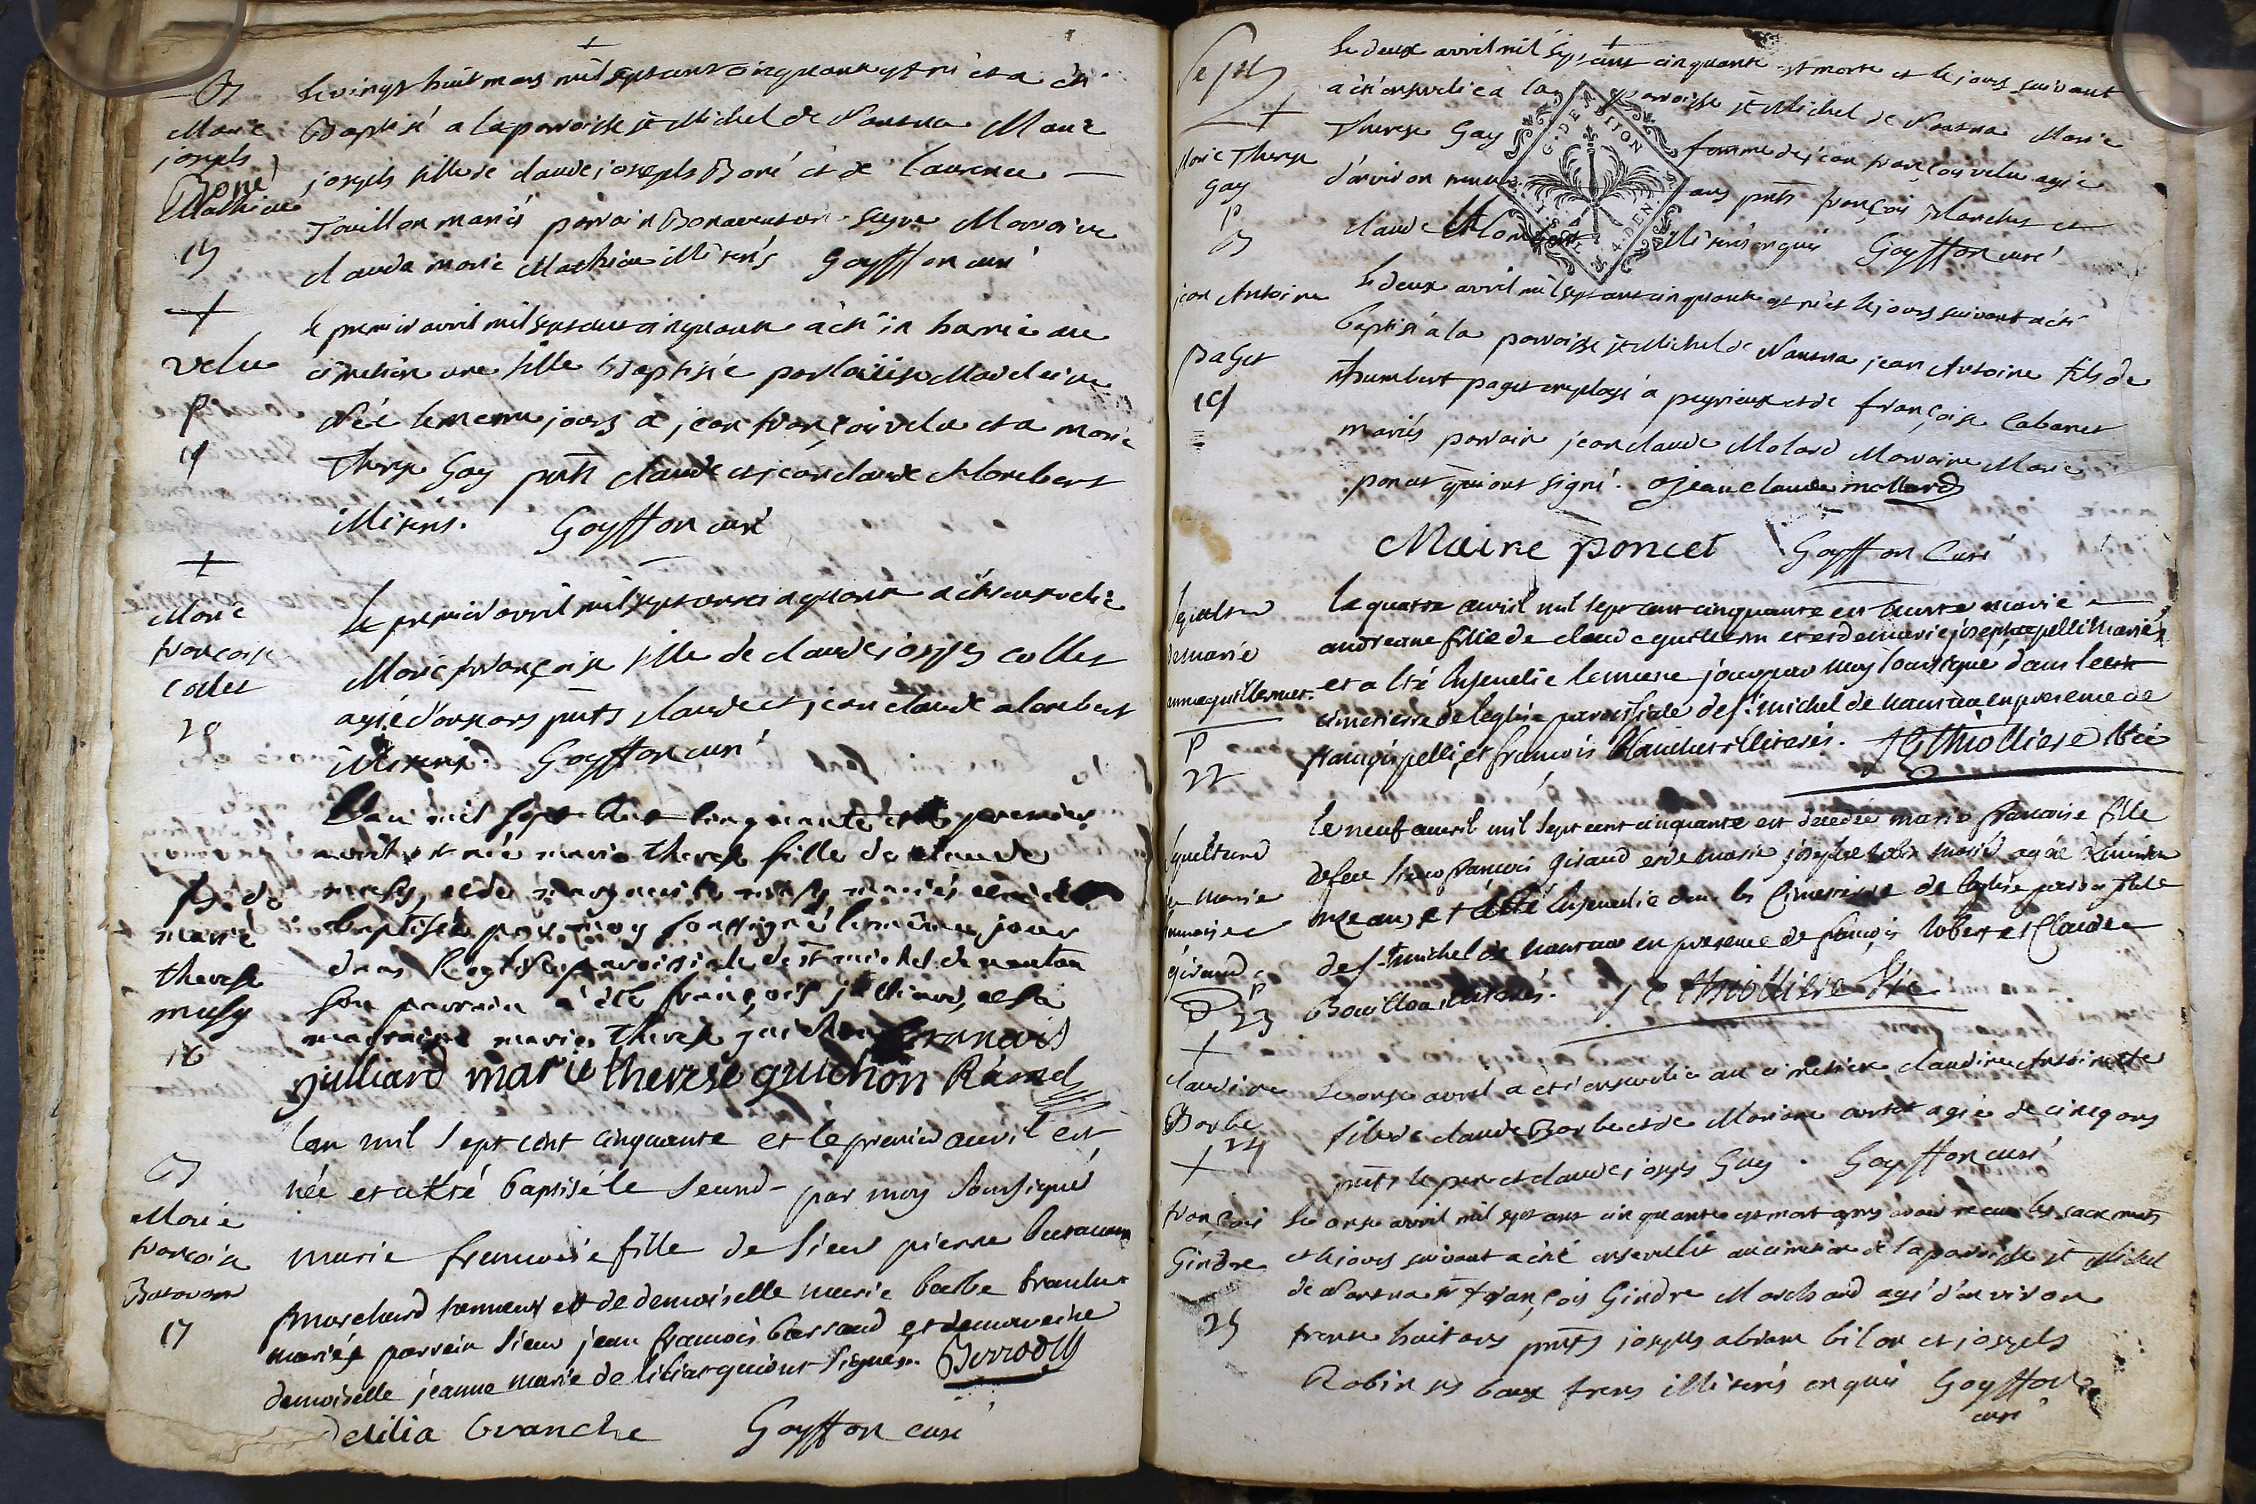 B
Marie
joseph
Boné
Mathieu
15
le vingt huit mars mil sept cent cinquante est né et a été
Baptisé a la paroisse st Michel de Nantua Marie
joseph fille de claude joseph Boné et de laurence
Touillon mariés parrain Bonaventure Marraine
clauda marie Mathieu illiterés Goyffon curé
+
velu
P
19
le premier avril mil sept cent cinquante a été in humée au
cimetiere une fille Baptisée par Madeleine
Née le meme jours a jean françois velu et a marie
Therese Gay pnts claude et jean claude Alombert
illiterés. Goyffon curé
+
Marie
françoise
Collet
20
le premier avril mil sept cent cinquante a été ensevelie
Marie françoise fille de claude joseph collet
agée d'onze ans pnts claude et jean claude alombert
illiterés Goyffon curé
B de
marie
therese
musy
16
L'an mil sept cent cinquante et le premier
avril est née marie therese fille de claude
musy, et de marguerite musy mariés
baptisée par moy soussigné le même jour
dans l'Eglise paroissiale de st michel de nantua
son parrain a été françois julliard, et sa
marraine marie therese guichon françois
julliard marie therese guichon Ravet
B
Marie
françoise
17
lan mil sept cent cinquante et le premier avril est
née et a été baptisé le second par moy soussigné
marie francoise fille de sieur pierre
marchand tanneur et de demoiselle marie
mariés parrain sieur jean francois et demoraine
demoiselle jeanne marie de lilia qui ont signés.
Delilia branche Goyffon curé
Sepult
+
Marie Therese
Gay
P
le deux avril mil sept cent cinquante est morte et le jours suivant
a été ensevelie a la paroisse st Michel de Nantua Marie
Therese Gay femme de jean françois velu agée
d'environ ans pnts françois Blanchet et
claude Alombert illiterés enquis Goyffon curé
G. DE DIJON
4. DEN
B
jean Antoine
paget
19
le deux avril mil sept cent cinquante est né et le jours suivant a été
baptisé a la paroisse st Michel de Nantua jean Antoine fils de
humbert paget employé a peyrieux et de françoise Cabanet
mariés parrain jean claude Molard Marraine Marie
poncet qui ont signé. jean claude mollard
Maire poncet Goyffon Curé
sepulture
de marie
anne guillermet
P
22
le quatre avril mil sept cent cinquante est morte marie
andreanne fille de claude guillerm et de marie joseph pelli mariés
et a été Ensevelie le meme jour par moy soussigné dans le
cimetierre de leglise paroissiale de st michel de nantua en presence de
francois pelli, et francois blanchet illiterés. JC thiolliere Vic
sepulture
de Marie
francoise
giraud
P
23
le neuf avril mil sept cent cinquante est decedée marie francoise fille
de feu sieur francois giraud et de marie josephe mariés agée d'environ
ans et a été Ensevelie dans le Cimetierre de leglise paroissiale
de st michel de nantua en presence de françois Robert et Claude
Bouillon illiterés. J C thiolliere Vic
+
claudine
Barbe
24
le onze avril a été ensevelie au cimetiere claudine Antoinette
fille de claude Barbe et de Mariane agée de cinq ans
pnts le pere et claude joseph Guy. Goyffon curé
+
françois
Gindre
25
le onze avril mil sept cent cinquante est mort apres avoir recu les sacrements
et le jours suivant a été ensevelit au cimetiere de la paroisse st Michel
de Nantua sr françois Gindre Marchand agé d'environ
trente huit ans pnts joseph abram bilon et joseph
Robin ses beaux freres illiterés enquis Goyffon
curé